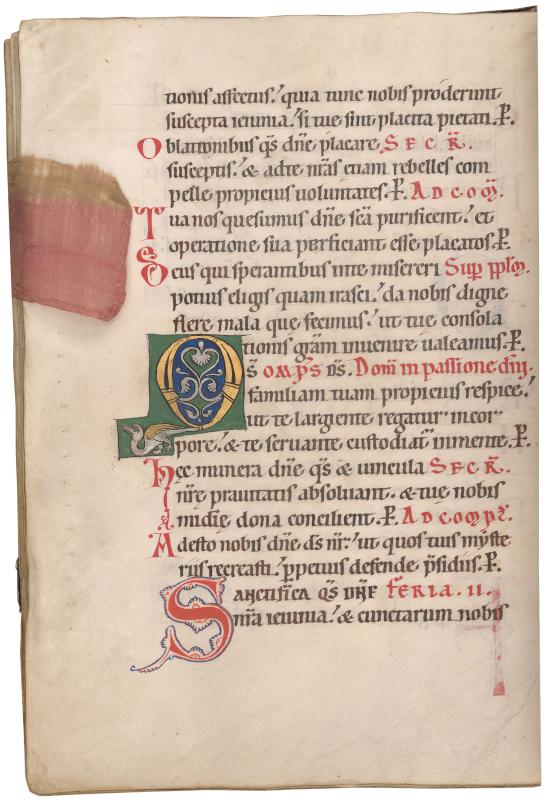 tionis affectus. quia tunc nobis proderunt
suscepta ieiunia. si tue sint placita pietati. P.
Oblationibus qs dne placare SECR.
susceptis. & ad te nras etiam rebelles com
pelle propicius uoluntates. P. AD COM.
Tua nos quesumus dne sca purificent. et
operatione sua perficiant esse placatos. P.
Deus qui sperantibus in te misereri Sup pplm.
potius eligis quam irasci. da nobis digne
flere mala que fecimus. ut tue consola
tionis gram inuenire ualeamus. P.
Qs omps ds. Dom in passione dni.
familiam tuam propicius respice.
ut te largiente regatur in cor
pore. & te seruante custodiat in mente. P.
Hęc munera dne qs & uincula SECR.
nrę prauitatis absoluant. & tuę nobis
miserico
midię dona concilient. P. AD COMPL.
Adesto nobis dne ds nr. ut quos tuis myste
riis recreasti. ppetuis defende psidiis. P.
SANCTIFICA QS DNE FERIA .II.
nra ieiunia. & cunctarum nobis